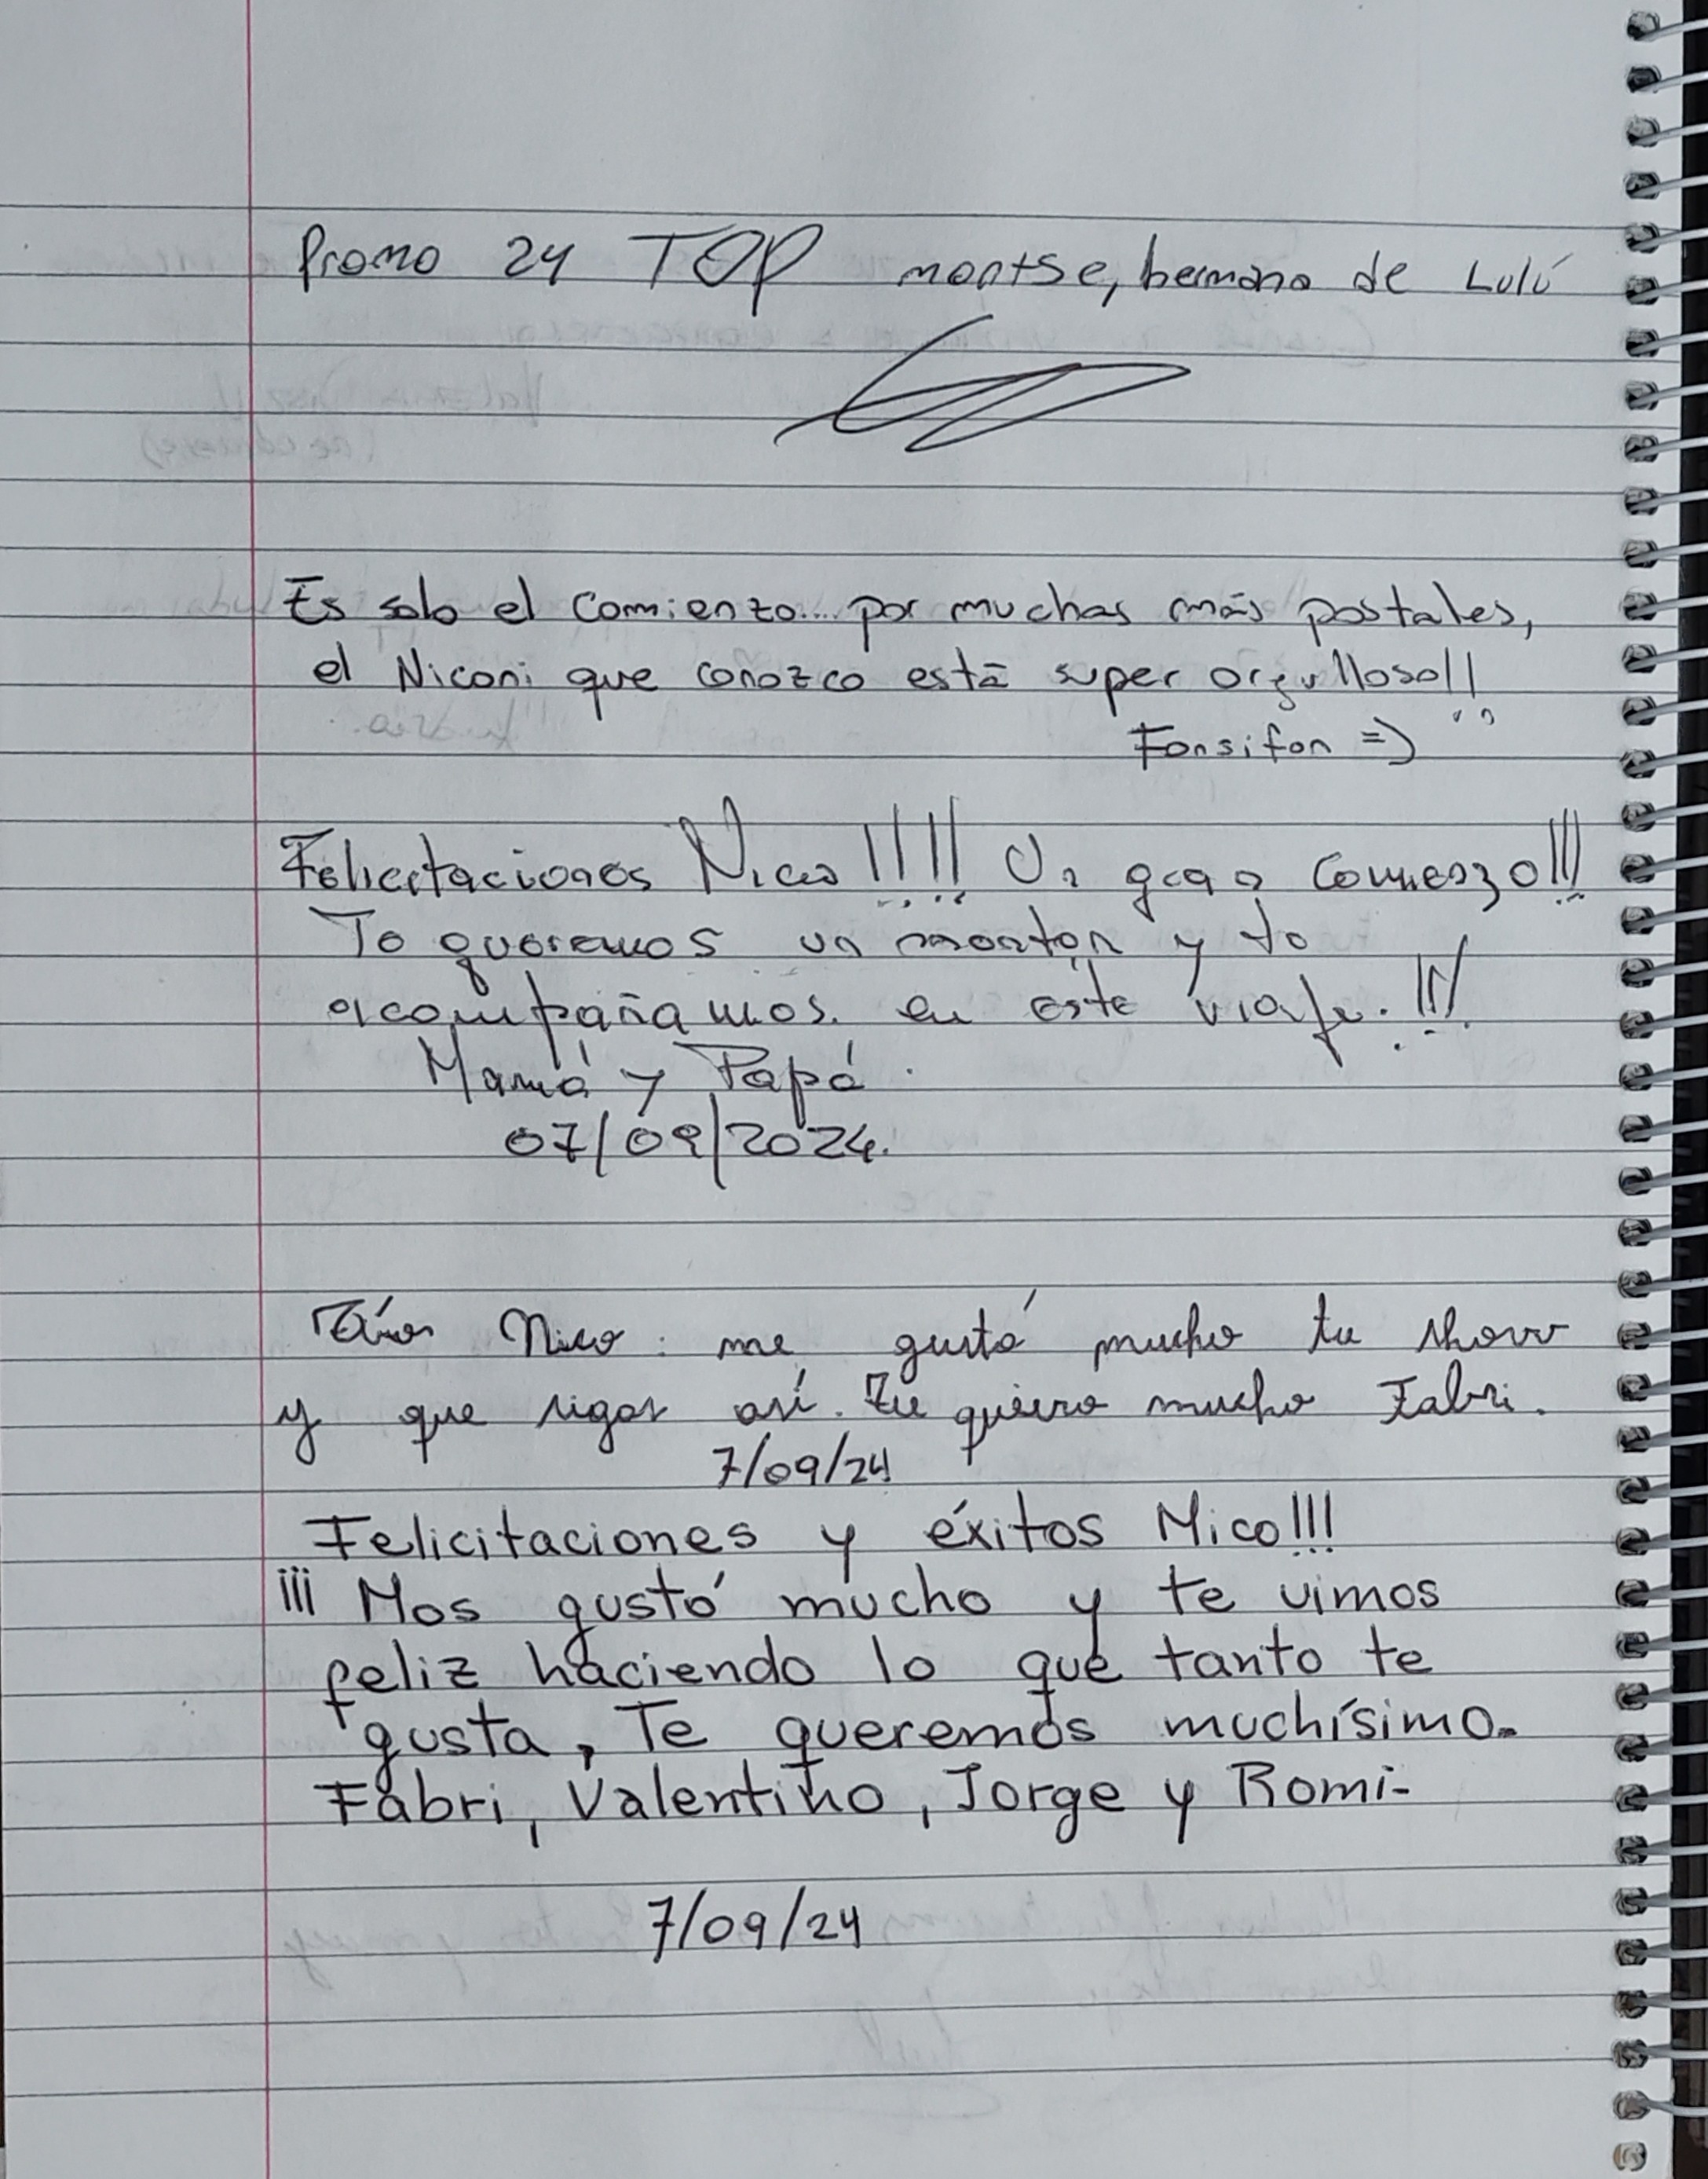 Promo 24 TOP montse, hermana de Lulú
Es solo el comienzo.... por muchas más postales,
el Niconi que conozco está super orgulloso!!
Fonsifon =)
Felicitaciones Nico!!!!! Un gran comienzo!!!
Te queremos un montón y te
acompañamos. en este viaje.!!!
Mamá y Papá.
07/09/2024.
Nico: me gustó mucho tu show
y que sigas así. Te quiero mucho Fabri.
7/09/24
Felicitaciones y éxitos Nico!!!
¡¡¡ Nos gustó mucho y te vimos
feliz haciendo lo que tanto te
gusta, Te queremos muchísimo.
Fabri, Valentino, Jorge y Romi-
7/09/24